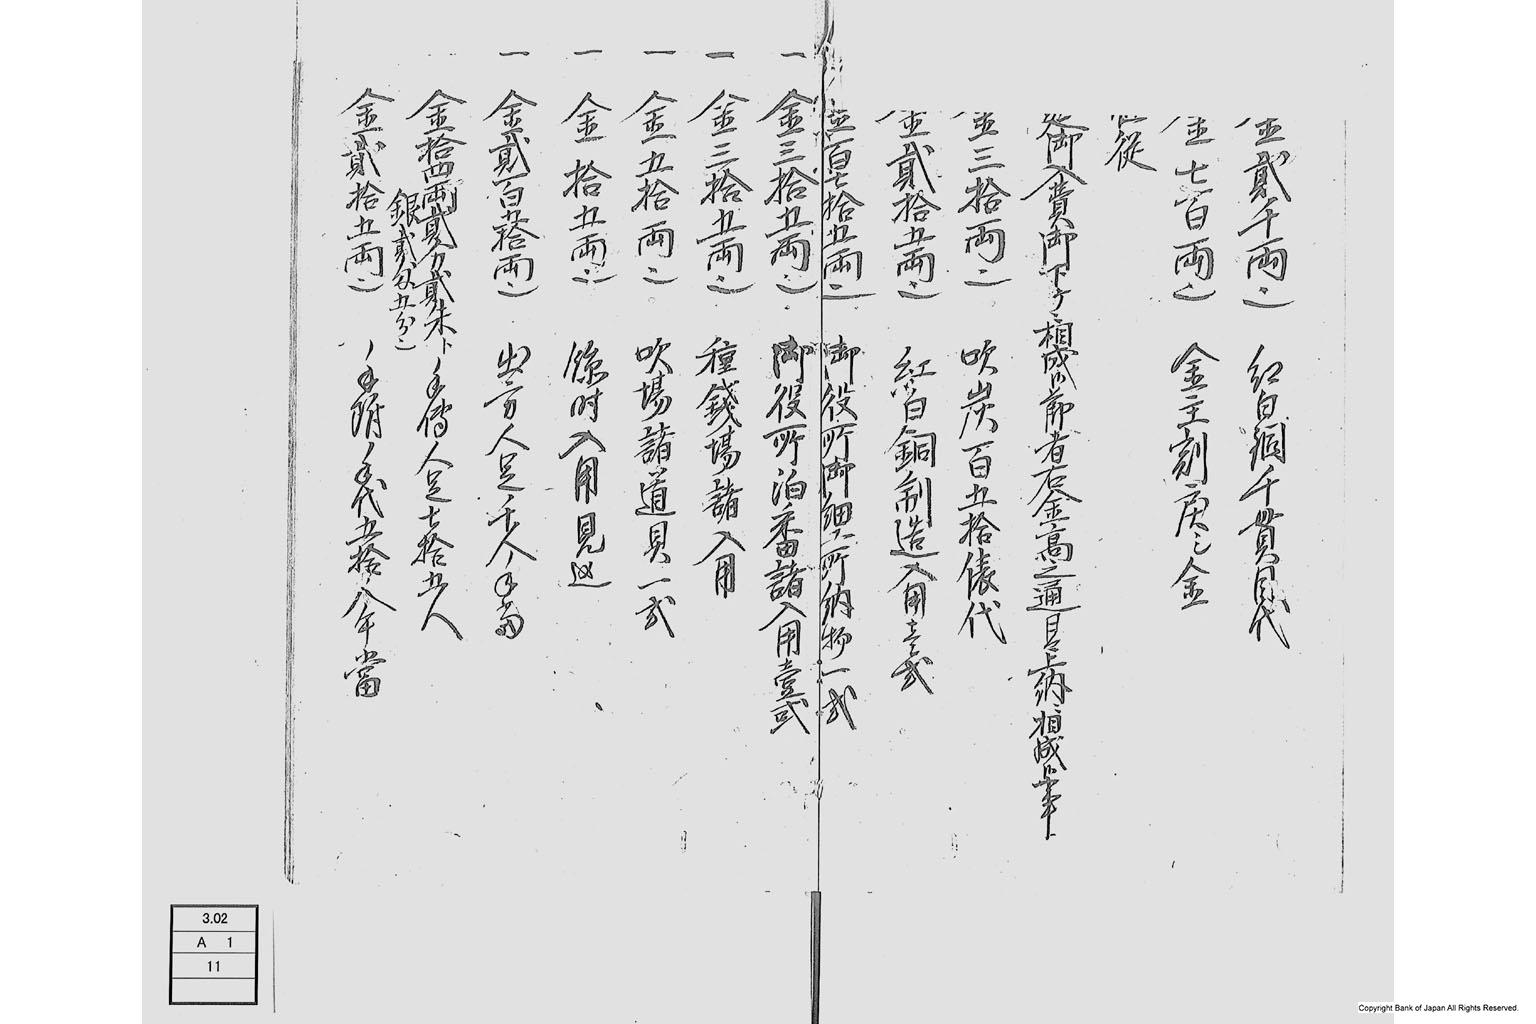 金貳千両 紅白銅千貫目代
金七百両 金主
従
御入費御下ケ相成候節者右金高之通上納相成候事
金三拾両 吹炭百五拾俵代
金貳拾五両 紅白銅制造入用壱式
金百七拾五両 御役所御細工所納物一式
一 金三拾五両 御役所泊番諸入用壹式
一 金三拾五両 種錢場諸入用
一 金五拾両 吹場諸道具一式
一 金拾五両 臨時入用見込
一 金貳百五拾両 出方人足千人手當
金拾四両貳分貳朱ト 手傳人足七拾五人
銀貳匁五分
金貳拾五両 手代五拾人手當
3.02
A 1
11
Copyright Bank of Japan All Rights Reserved.